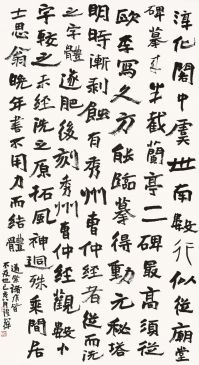 淳化閣中虞世南數行似從廟堂
碑摹出半截蘭亭二碑最高須從
歐本寫久方能臨摹得動元秘塔
明時漸剝蝕有秀州曹仲經者從而洗
之字體遂肥後刻秀州曹仲經觀數小
字較之未經洗之原拓風神迥殊乘間居
士思翁晚年書不用力而結體
不及也